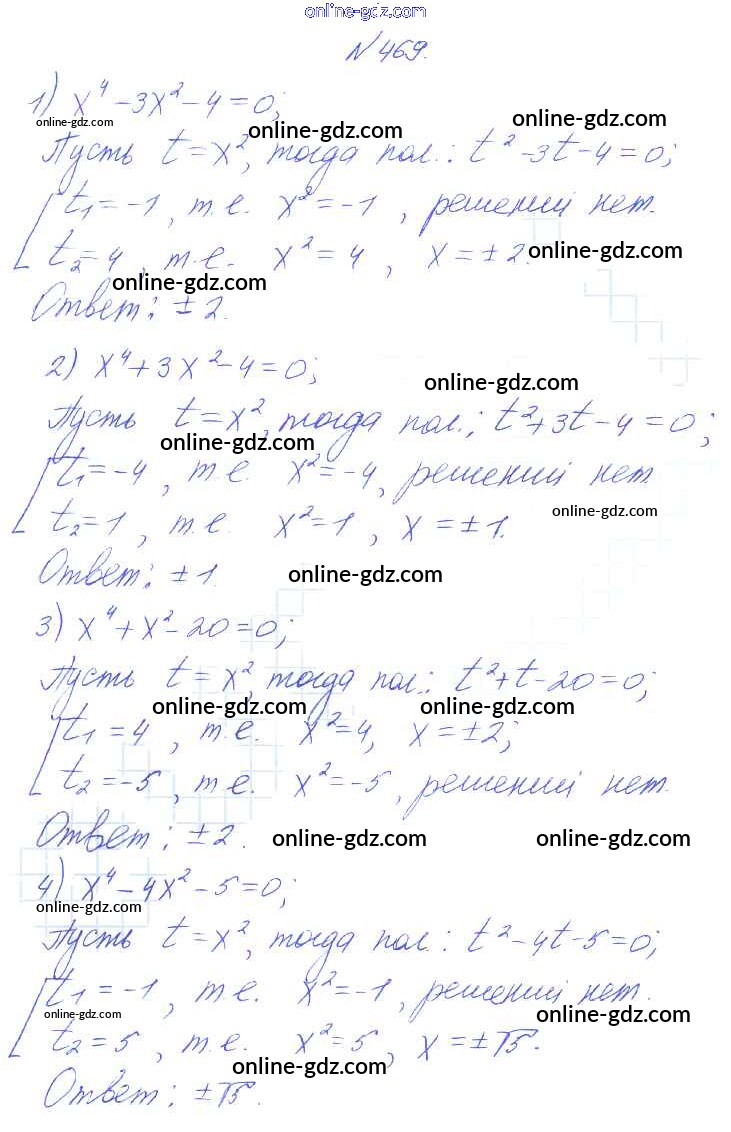 online-gdz.com
№469.
1) x⁴ - 3x² - 4 = 0;
online-gdz.com online-gdz.com online-gdz.com
Пусть t = x², тогда пол.: t² - 3t - 4 = 0;
t₁ = -1, т.е. x² = -1, решений нет.
t₂ = 4, т.е. x² = 4, x = ± 2.
online-gdz.com
online-gdz.com
Ответ: ± 2.
2) x⁴ + 3x² - 4 = 0;
online-gdz.com
Пусть t = x², тогда пол.; t² + 3t - 4 = 0;
online-gdz.com
t₁ = -4, т.е. x² = -4, решений нет.
t₂ = 1, т.е. x² = 1, x = ± 1.
online-gdz.com
Ответ: ± 1.
online-gdz.com
3) x⁴ + x² - 20 = 0;
Пусть t = x², тогда пол.: t² + t - 20 = 0;
online-gdz.com online-gdz.com
t₁ = 4, т.е. x² = 4, x = ±2;
t₂ = -5, т.е. x² = -5, решений нет.
Ответ: ± 2.
online-gdz.com online-gdz.com
4) x⁴ - 4x² - 5 = 0;
online-gdz.com
Пусть t = x², тогда пол.: t² - 4t - 5 = 0;
t₁ = -1, т.е. x² = -1, решений нет.
online-gdz.com online-gdz.com
t₂ = 5, т.е. x² = 5, x = ± √5.
online-gdz.com
Ответ: ± √5.